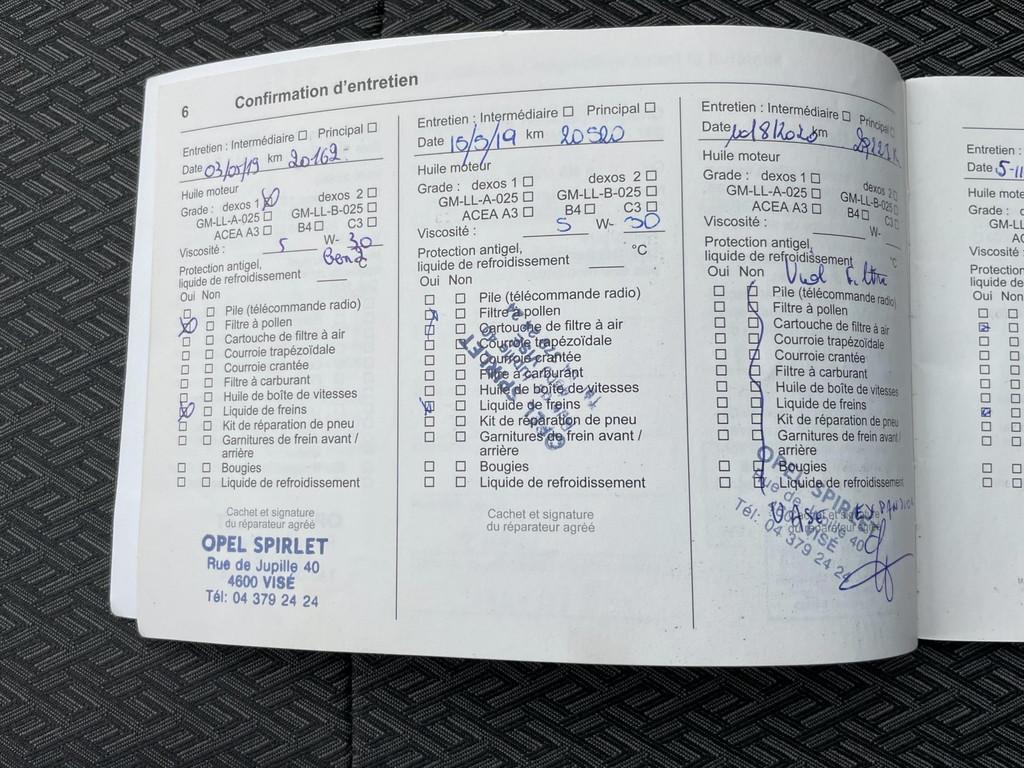 6 Confirmation d'entretien
Entretien : Intermédiaire ☐ Principal ☐
Date 03/05/19 km 20162
Huile moteur
Grade : dexos 1
GM-LL-A-025 ☐ GM-LL-B-025 ☐
ACEA A3 ☐ B4 ☐ C3 ☐
Viscosité : 5 W- 30
Protection antigel,
liquide de refroidissement °C
Oui Non
Pile (télécommande radio)
Filtre à pollen
Cartouche de filtre à air
Courroie trapézoïdale
Courroie crantée
Filtre à carburant
Huile de boîte de vitesses
Liquide de freins
Kit de réparation de pneu
Garnitures de frein avant /
arrière
Bougies
Liquide de refroidissement
Cachet et signature
du réparateur agréé
OPEL SPIRLET
Rue de Jupille 40
4600 VISÉ
Tél: 04 379 24 24
Entretien : Intermédiaire ☐ Principal ☐
Date 15/5/19 km 20520
Huile moteur
Grade : dexos 1 ☐ dexos 2 ☐
GM-LL-A-025 ☐ GM-LL-B-025 ☐
ACEA A3 ☐ B4 ☐ C3 ☐
Viscosité : 5 W- 30
Protection antigel, °C
liquide de refroidissement
Oui Non
Pile (télécommande radio)
Filtre à pollen
Cartouche de filtre à air
Courroie trapézoïdale
Courroie crantée
Filtre à carburant
Huile de boîte de vitesses
Liquide de freins
Kit de réparation de pneu
Garnitures de frein avant /
arrière
Bougies
Liquide de refroidissement
OPEL SPIRLET
Cachet et signature
du réparateur agréé
Entretien : Intermédiaire ☐ Principal ☐
Date km
Huile moteur
Grade : dexos 1 ☐ dexos 2 ☐
GM-LL-A-025 ☐ GM-LL-B-025 ☐
ACEA A3 ☐ B4 ☐ C3 ☐
Viscosité : W-
Protection antigel,
liquide de refroidissement °C
Oui Non
Pile (télécommande radio)
Filtre à pollen
Cartouche de filtre à air
Courroie trapézoïdale
Courroie crantée
Filtre à carburant
Huile de boîte de vitesses
Liquide de freins
Kit de réparation de pneu
Garnitures de frein avant /
arrière
Bougies
Liquide de refroidissement
OPEL SPIRLET
Rue de Jupille 40
4600 VISÉ
Tél: 04 379 24 24
Entretien :
Date 5-11
Huile mote
Grade :
GM-LL
Viscosité
Protection
liquide de
Oui Non